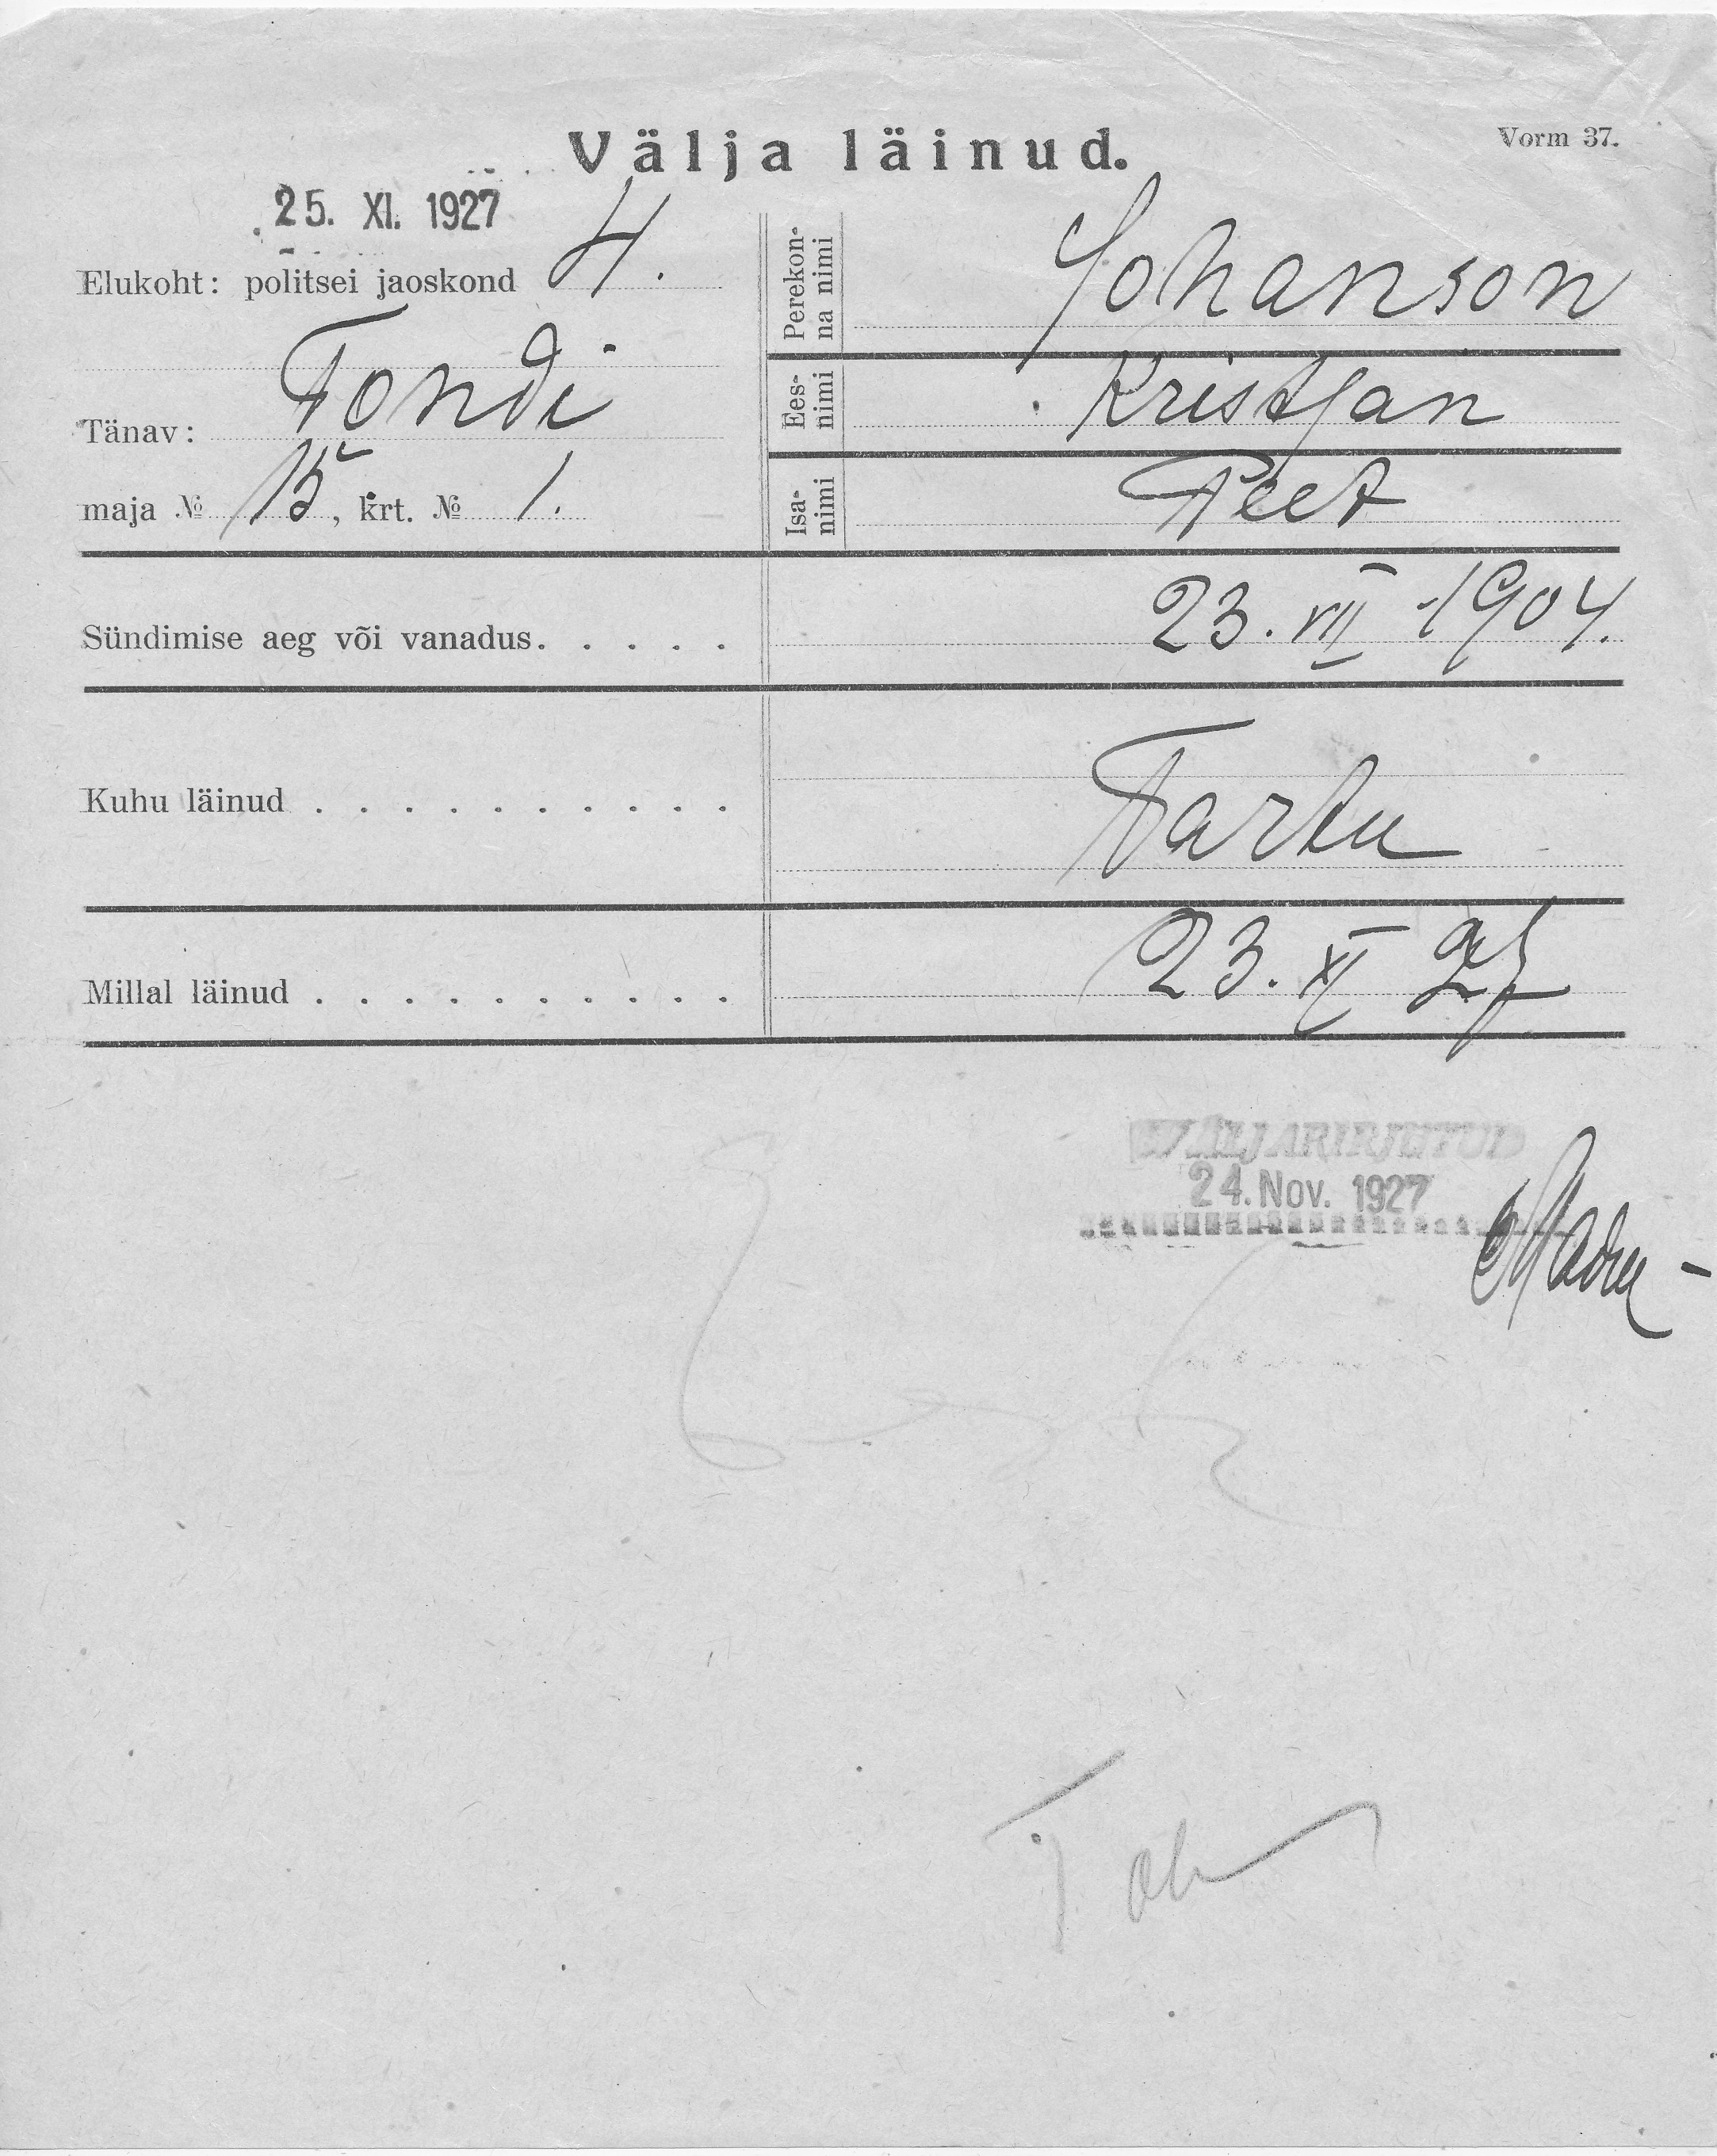 Välja läinud.
Vorm 37.
25. XI. 1927
Elukoht: politsei jaoskond 4.
Tänav: Tondi
maja № 15, krt. № 1.
Perekon-
na nimi
Johanson
Ees-
nimi
Kristjan
Isa-
nimi
Peet
Sündimise aeg või vanadus. . . . . 23. VII 1904.
Kuhu läinud . . . . . . . . . . Tartu
Millal läinud . . . . . . . . . . 23. XI 27
24. Nov. 1927